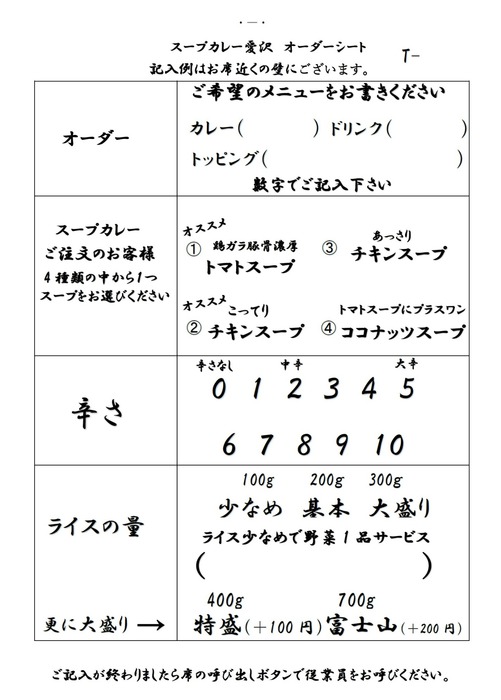 スープカレー愛沢 オーダーシート
記入例はお席近くの壁にございます。
T-
オーダー
ご希望のメニューをお書きください
カレー( ) ドリンク( )
トッピング( )
数字でご記入下さい
スープカレー
ご注文のお客様
4種類の中から1つ
スープをお選びください
オススメ
① 鶏ガラ豚骨濃厚
トマトスープ
③ あっさり
チキンスープ
オススメ
こってり
② チキンスープ
トマトスープにプラスワン
④ ココナッツスープ
辛さ
辛さなし 中辛 大辛
0 1 2 3 4 5
6 7 8 9 10
ライスの量
100g 200g 300g
少なめ 基本 大盛り
ライス少なめで野菜1品サービス
( )
更に大盛り →
400g 700g
特盛(+100円) 富士山(+200円)
ご記入が終わりましたら席の呼び出しボタンで従業員をお呼びください。